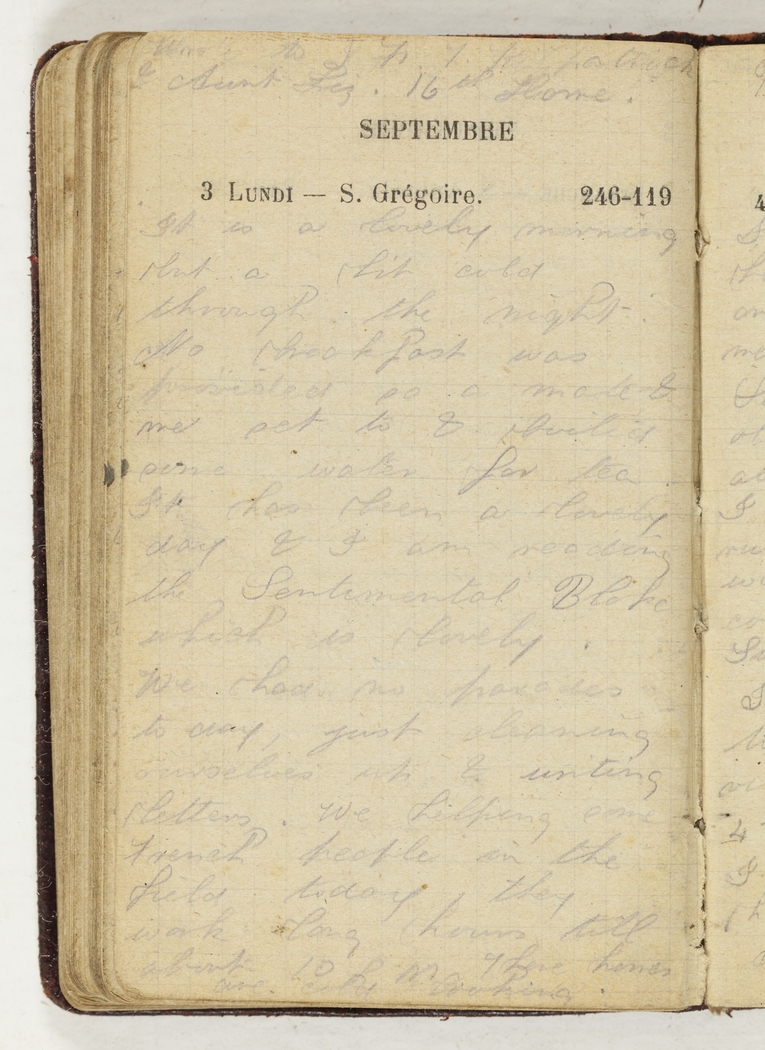 Wrote to
& Aunt Liz. 16th Home.
SEPTEMBRE
3 LUNDI — S. Grégoire. 246-119
It is a lovely morning
but a bit cold
through the night.
No breakfast was
provided so a mate &
me set to & boiled
some water for tea.
It has been a lovely
day & I am reading
the Sentimental Bloke
which is lovely.
We had no parades
to day, just cleaning
ourselves up & writing
letters. We helping some
French people in the
field today, they
work long hours till
about 10 P M
are